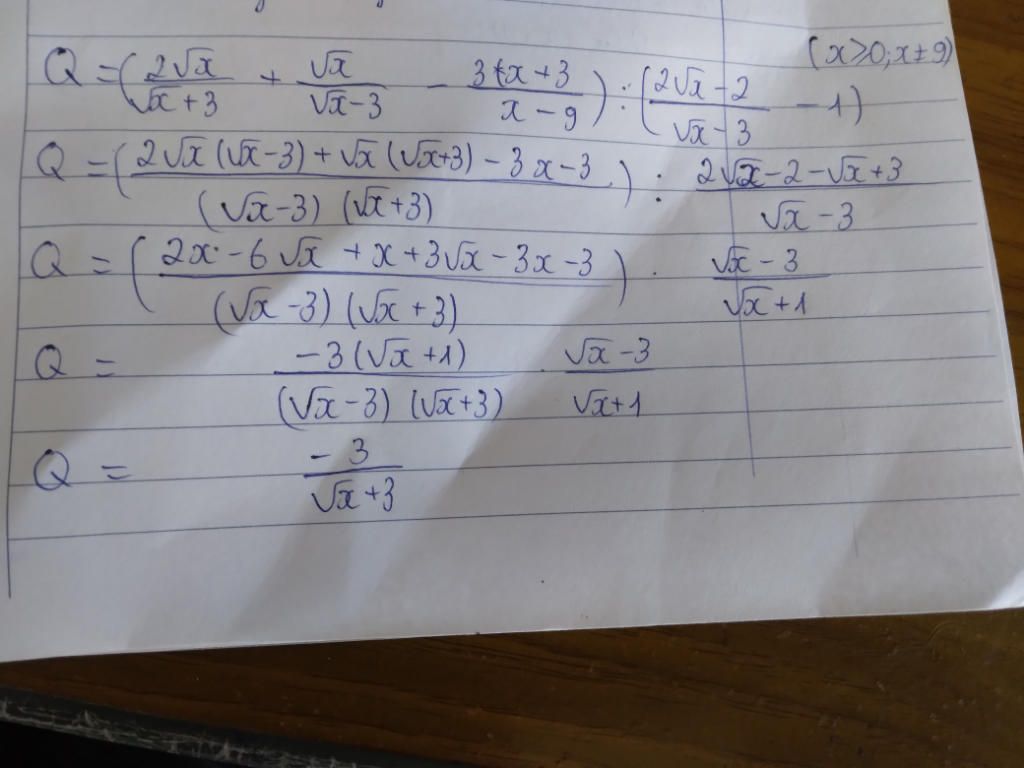 (x≥0; x≠9)
Q = (2√x/(√x+3) + √x/(√x-3) - (3x+3)/(x-9)) : ((2√x-2)/(√x-3) - 1)
Q = ((2√x(√x-3)+√x(√x+3)-3x-3)/((√x-3)(√x+3))) : (2√x-2-√x+3)/(√x-3)
Q = ((2x-6√x+x+3√x-3x-3)/((√x-3)(√x+3))) · (√x-3)/(√x+1)
Q = -3(√x+1)/((√x-3)(√x+3)) · (√x-3)/(√x+1)
Q = -3/(√x+3)